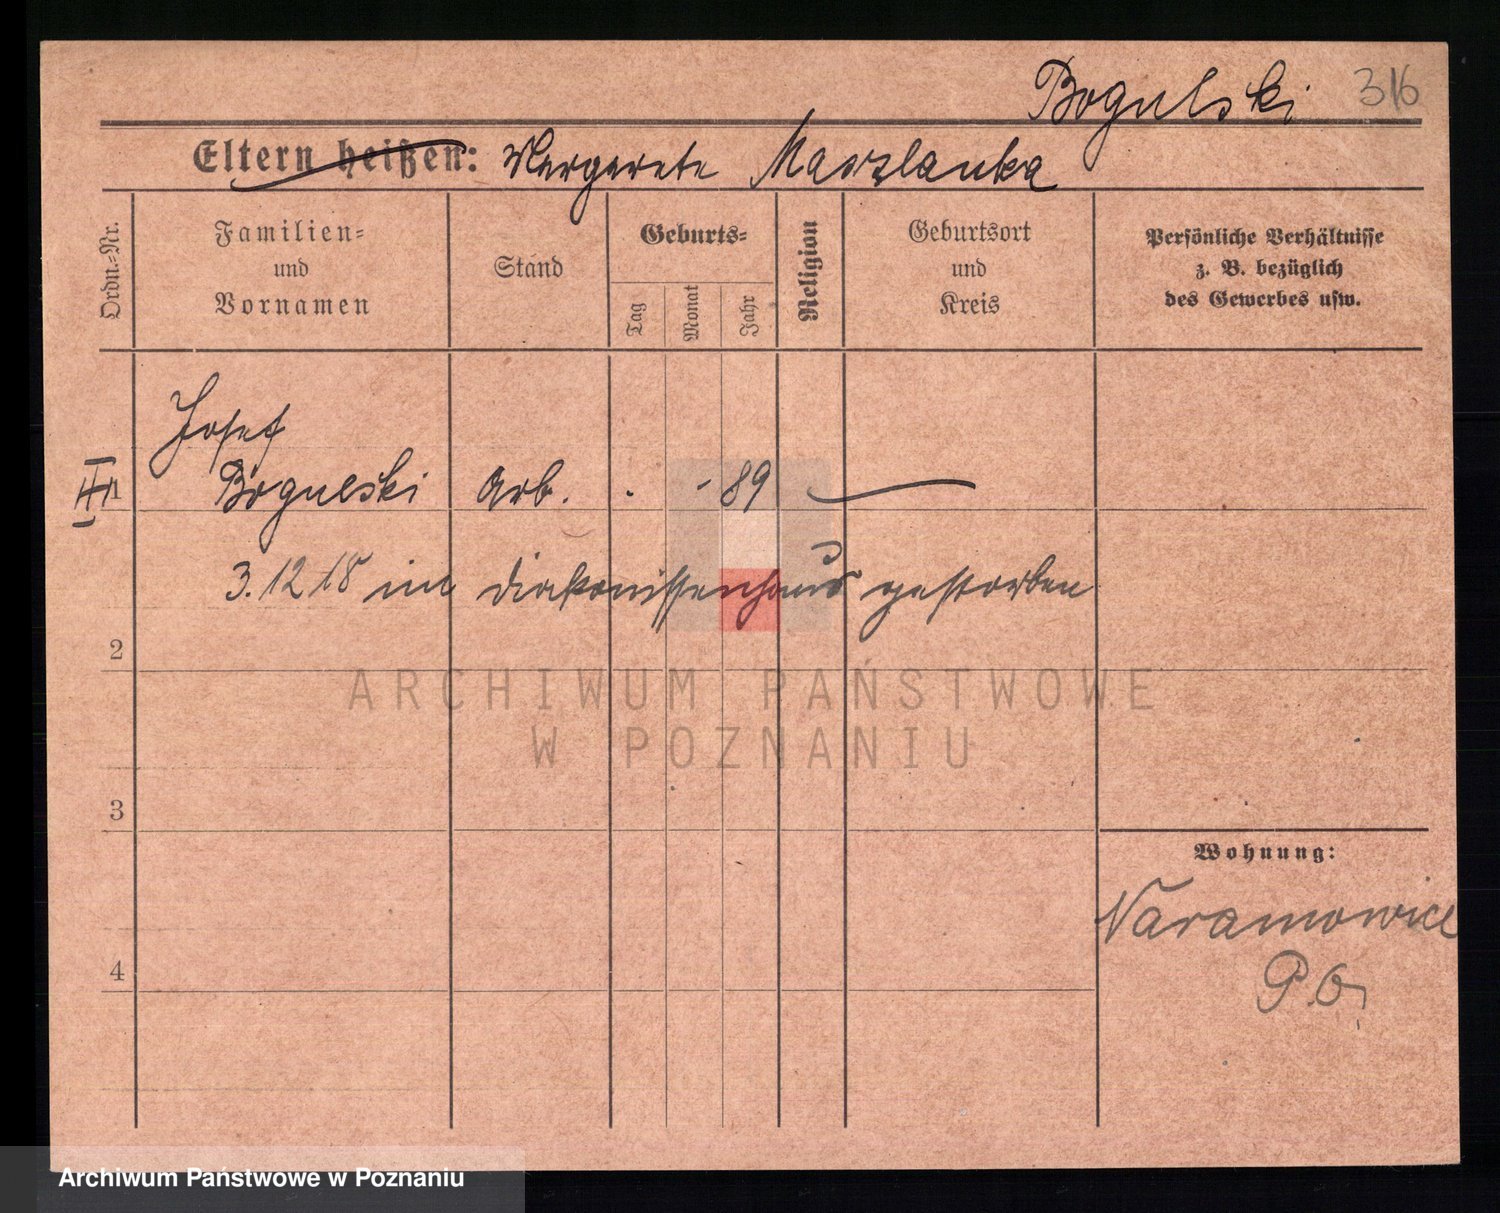 Bogulski 316
Eltern heißen: Margarete Maszlanka
Ordn.-Nr.
Familien-
und
Vornamen
Stand
Geburts-
Tag
Monat
Jahr
Religion
Geburtsort
und
Kreis
Persönliche Verhältnisse
z. B. bezüglich
des Gewerbes usw.
Josef
1 Bogulski Arb. . - 89
3. 12 18 im Diakonissenhaus gestorben
2
ARCHIWUM PAŃSTWOWE
W POZNANIU
3
Wohnung:
Naramowice
4
Archiwum Państwowe w Poznaniu